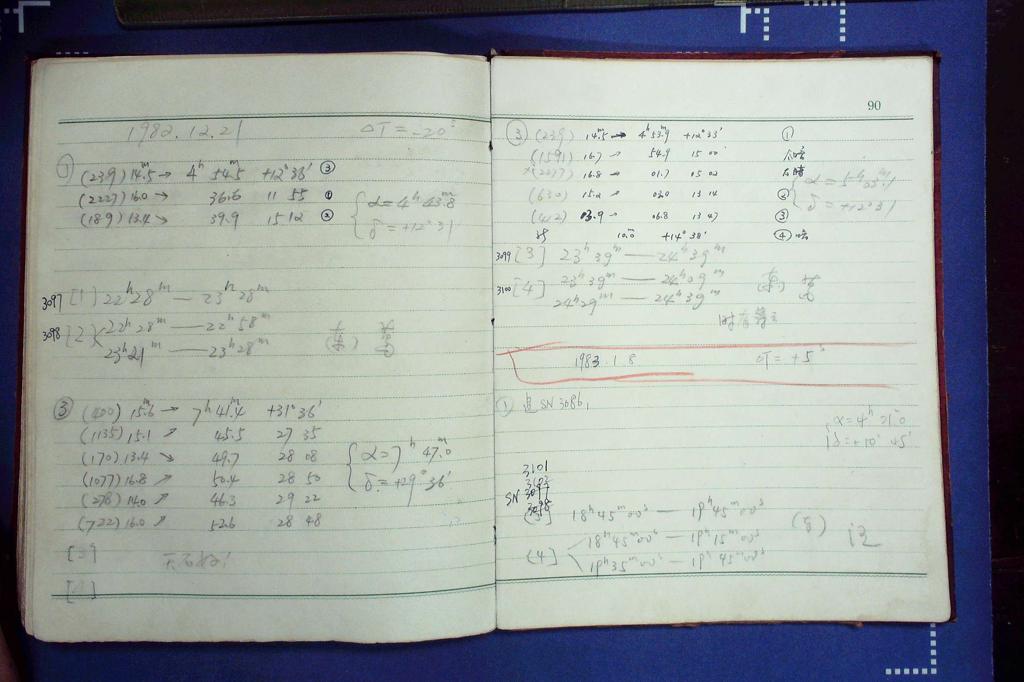 1982.12.21 ΔT = -20ˢ
① (239) 14.ᵐ5 → 4ʰ 54.ᵐ5 +12°36′ ③
(2227) 16.0 → 36.6 11 55 ①
(189) 13.4 → 39.9 15 12 ②
{ α = 4ʰ 43.ᵐ8
δ = +12°31′
3097 [1] 22ʰ28ᵐ — 23ʰ28ᵐ
3098 [2] 22ʰ28ᵐ — 22ʰ58ᵐ
23ʰ21ᵐ — 23ʰ28ᵐ
③ (400) 15.ᵐ6 → 7ʰ 41.ᵐ4 +31°36′
(1135) 15.1 ↗ 45.5 27 35
(170) 13.4 ↘ 49.7 28 08
(1077) 16.8 ↗ 50.4 28 50
(278) 14.0 ↗ 46.3 29 22
(722) 16.0 ↗ 52.6 28 48
{ α = 7ʰ 47.ᵐ0
δ = +29°36′
[3]
[4]
90
③ (239) 14.ᵐ5 → 4ʰ 53.ᵐ9 +12°33′ ①
(1591) 16.7 → 54.9 15 00
(2237) 16.8 → 01.7 15 02
(630) 15.2 → 03.0 13 14 ②
(412) 13.9 → 06.8 13 47 ③
10.ᵐ0 +14°38′ ④
δ = +12°31′
3099 [3] 23ʰ39ᵐ — 24ʰ39ᵐ
3100 [4] 23ʰ39ᵐ — 24ʰ09ᵐ
24ʰ29ᵐ — 24ʰ39ᵐ
时有
1983.1.8 ΔT = +5ˢ
① SN 3086,
α = 4ʰ 21.ᵐ0
δ = +10° 45′
3101
3102
SN 3097
3098
[3] 18ʰ45ᵐ00ˢ — 19ʰ45ᵐ00ˢ
[4] 18ʰ45ᵐ00ˢ — 19ʰ15ᵐ00ˢ
19ʰ35ᵐ00ˢ — 19ʰ45ᵐ00ˢ